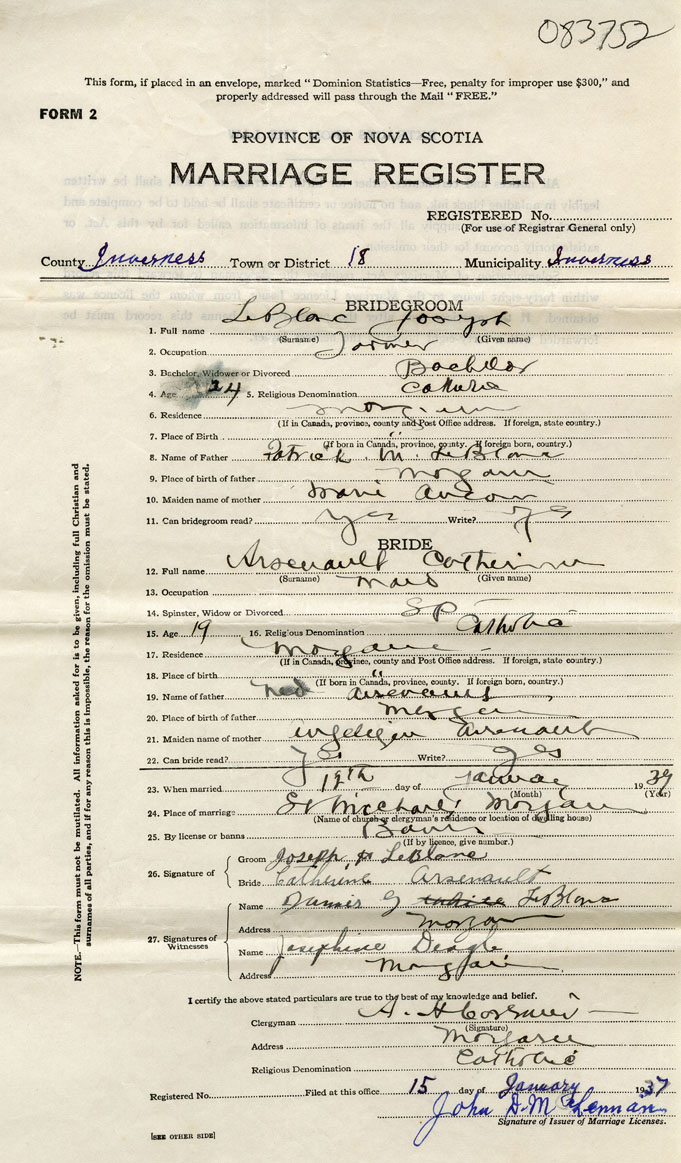 083752
This form, if placed in an envelope, marked "Dominion Statistics—Free, penalty for improper use $300," and
properly addressed will pass through the Mail "FREE."
FORM 2
PROVINCE OF NOVA SCOTIA
MARRIAGE REGISTER
REGISTERED No.
(For use of Registrar General only)
County Inverness Town or District 18 Municipality Inverness
BRIDEGROOM
1. Full name LeBlanc Joseph
(Surname) (Given name)
2. Occupation Farmer
3. Bachelor, Widower or Divorced Bachelor
4. Age 24 5. Religious Denomination Catholic
6. Residence
(If in Canada, province, county and Post Office address. If foreign, state country.)
7. Place of Birth "
(If born in Canada, province, county. If foreign born, country.)
8. Name of Father Patrick M. LeBlanc
9. Place of birth of father Margaree
10. Maiden name of mother
11. Can bridegroom read? Yes Write? Yes
BRIDE
12. Full name Arsenault Catherine
(Surname) (Given name)
13. Occupation Maid
14. Spinster, Widow or Divorced SP
15. Age 19 16. Religious Denomination Catholic
17. Residence Margaree
(If in Canada, province, county and Post Office address. If foreign, state country.)
18. Place of birth "
(If born in Canada, province, county. If foreign born, country.)
19. Name of father Ned Arsenault
20. Place of birth of father Margaree
21. Maiden name of mother Arsenault
22. Can bride read? Yes Write? Yes
23. When married 12th day of January 1937
(Month) (Year)
24. Place of marriage St Michael's Margaree
(Name of church or clergyman's residence or location of dwelling house)
25. By license or banns Banns
(If by licence, give number.)
26. Signature of
Groom Joseph H LeBlanc
Bride Catherine Arsenault
27. Signatures of Witnesses
Name LeBlanc
Address Margaree
Name Josephine Deagle
Address Margaree
I certify the above stated particulars are true to the best of my knowledge and belief.
Clergyman A. H Cormier
(Signature)
Address Margaree
Religious Denomination Catholic
Registered No. Filed at this office 15 day of January 1937
John D. McLennan
Signature of Issuer of Marriage Licenses.
[SEE OTHER SIDE]
NOTE.—This form must not be mutilated. All information asked for is to be given, including full Christian and
surnames of all parties, and if for any reason this is impossible, the reason for the omission must be stated.